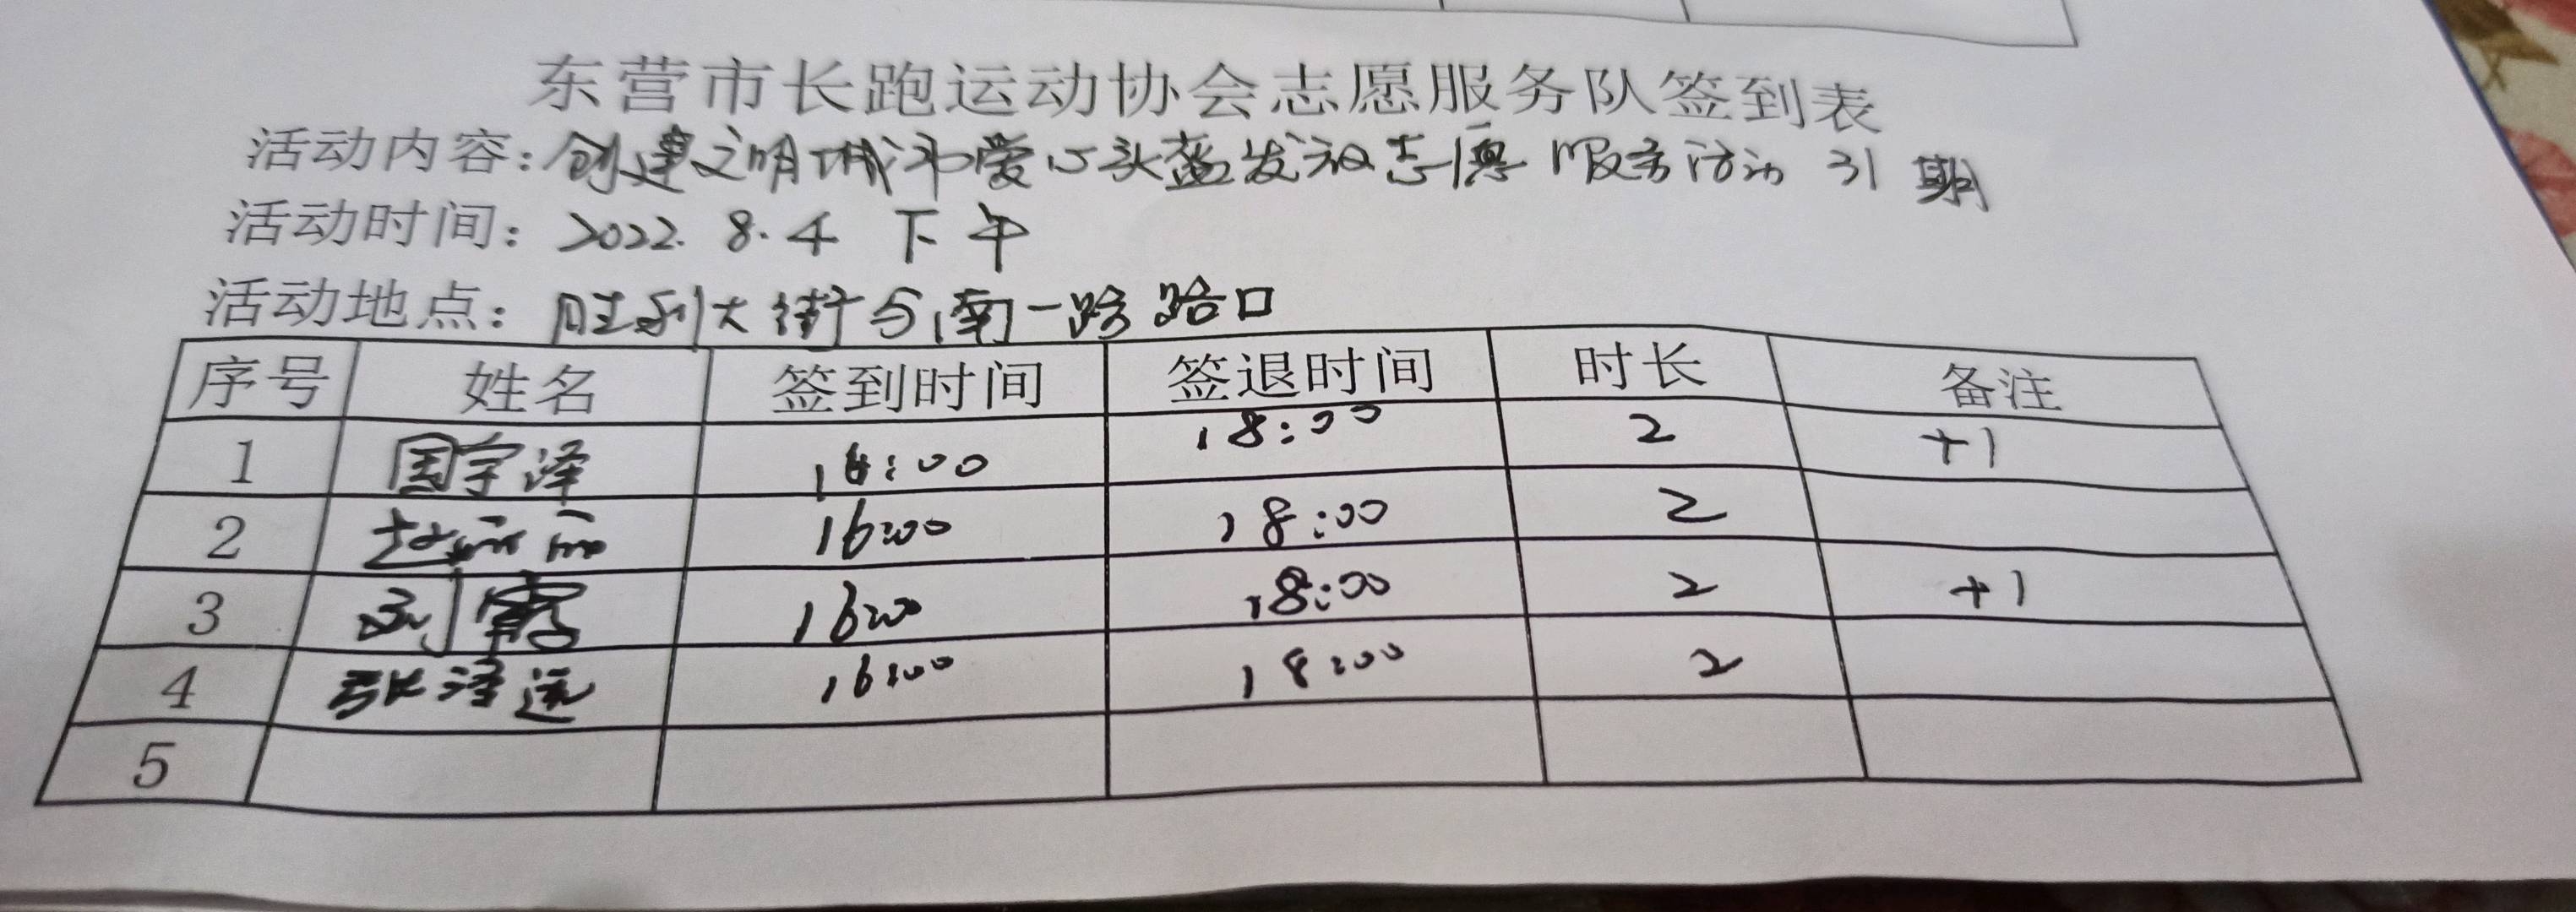 东营市长跑运动协会志愿服务队签到表
活动内容：创建文明城市爱心头盔发放志愿服务活动 31 期
活动时间：2022.8.4 下午
活动地点：胜利大街与南一路路口
序号 姓名 签到时间 签退时间 时长 备注
1 国宇泽 16:00 18:00 2 +1
2 16:00 18:00 2
3 刘霞 16:00 18:00 2 +1
4 张泽远 16:00 18:00 2
5